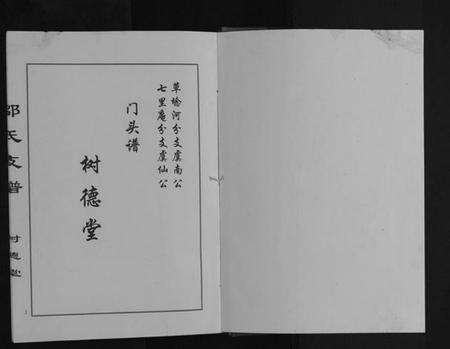 草埝河分支虞南公
七里庵分支虞仙公
门头谱
树德堂
邵氏支谱
树德堂
1